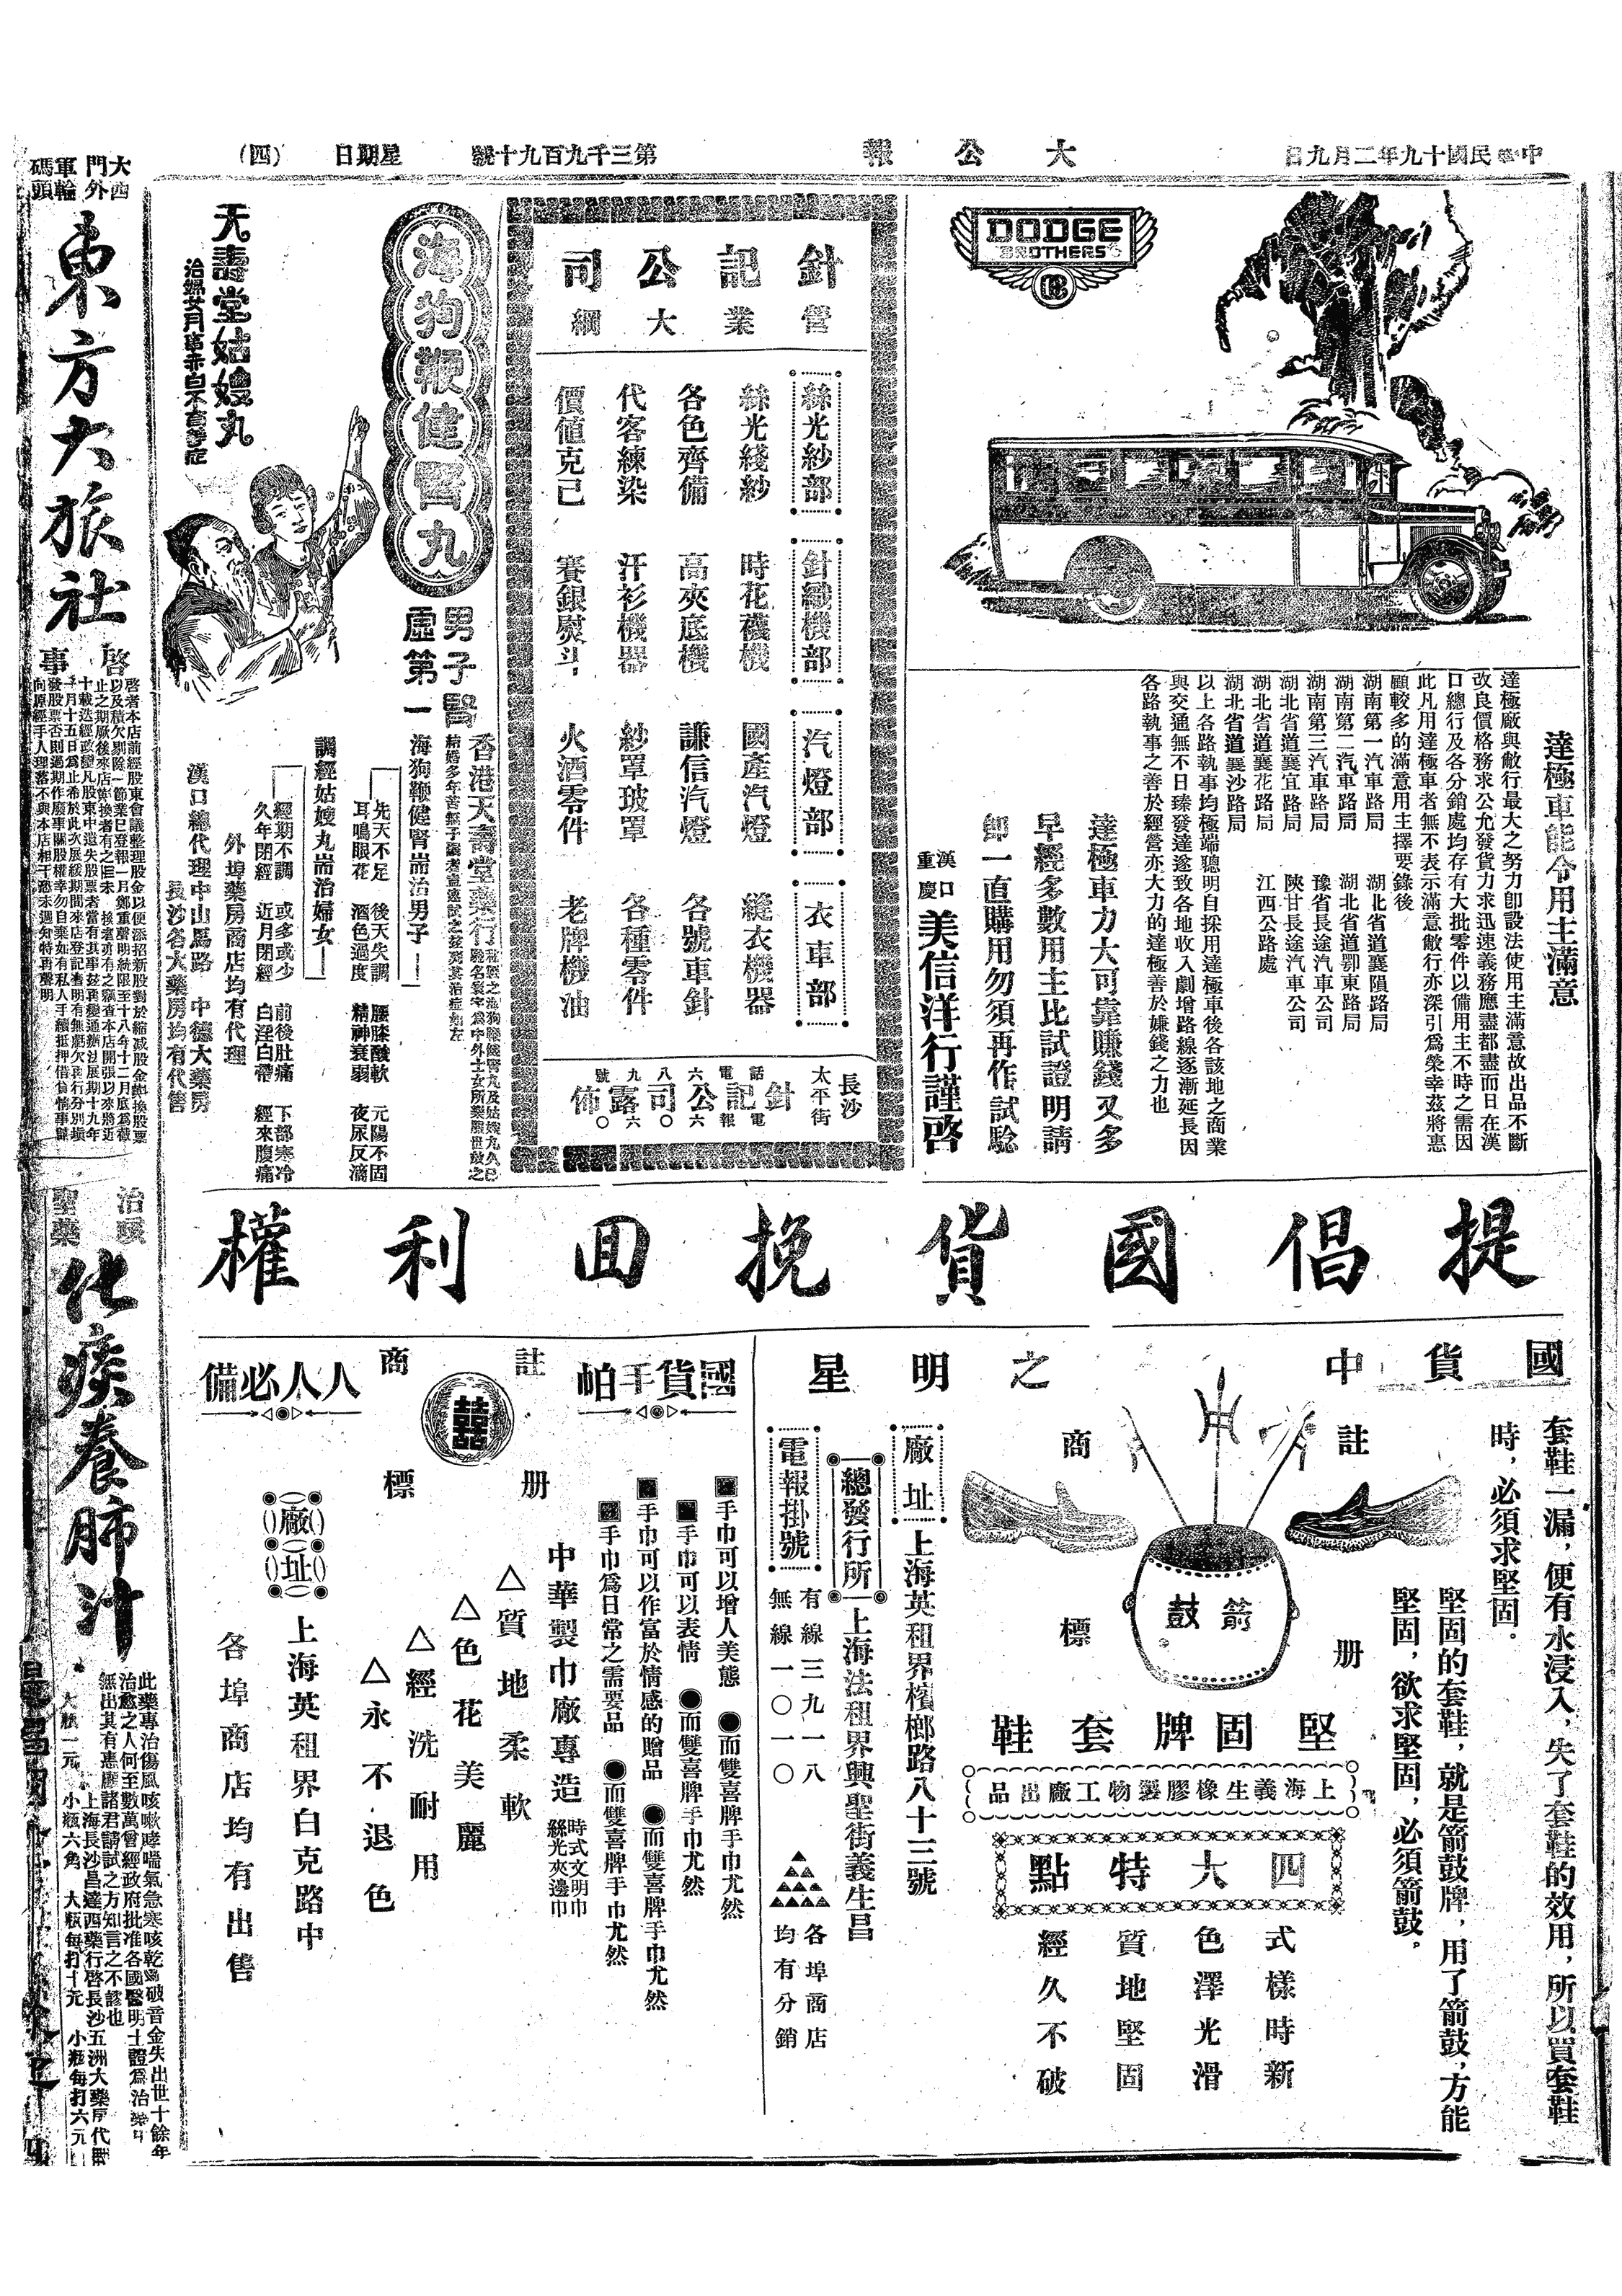 中華民國十九年二月九日
大公報
第三千九百九十號
星期日
(四)
DODGE
BROTHERS
DB
達極車能令用主滿意
達極廠與敝行最大之努力卽設法使用主滿意故出品不斷
改良價格務求公允發貨力求迅速義務應盡都盡而日在漢
口總行及各分銷處均存有大批零件以備用主不時之需因
此凡用達極車者無不表示滿意敝行亦深引爲榮幸茲將惠
顧較多的滿意用主擇要錄後
湖南第一汽車路局 湖北省道襄隕路局
湖南第二汽車路局 湖北省道鄂東路局
湖南第三汽車路局 豫省長途汽車公司
湖北省道襄宜路局 陝甘長途汽車公司
湖北省道襄花路局 江西公路處
湖北省道襄沙路局
以上各路執事均極端聰明自採用達極車後各該地之商業
與交通無不日臻發達遂致各地收入劇增路線逐漸延長因
各路執事之善於經營亦大力的達極善於嫌錢之力也
達極車力大可靠賺錢又多
早經多數用主比試證明請
卽一直購用勿須再作試驗
漢口
重慶
美信洋行謹啓
針記公司
營業大綱
絲光紗部
絲光綫紗
各色齊備
代客練染
價值克己
針織機部
時花襪機
高夾底機
汗衫機器
賽銀熨斗
汽燈部
國產汽燈
謙信汽燈
紗罩玻罩
火酒零件
衣車部
縫衣機器
各號車針
各種零件
老牌機油
長沙
太平街
電話六八九號
針記公司露佈
電報六〇六〇
海狗鞭健腎丸
男子腎
虛第一
天壽堂姑嫂丸
香港天壽堂藥行
海狗鞭健腎耑治男子
先天不足 後天失調 腰膝酸軟 元陽不固
耳鳴眼花 酒色過度 精神衰弱 夜尿反滴
調經姑嫂丸耑治婦女
經期不調 或多或少 前後肚痛 下部寒冷
久年閉經 近月閉經 白淫白帶 經來腹痛
外埠藥房商店均有代理
漢口總代理中山馬路 中德大藥房
長沙各大藥房均有代售
大西門外
軍輪碼頭
東方大旅社
啓事
提倡國貨挽回利權
國貨中之明星
套鞋一漏，便有水浸入，失了套鞋的效用，所以買套鞋
時，必須求堅固。
堅固的套鞋，就是箭鼓牌，用了箭鼓，方能
堅固，欲求堅固，必須箭鼓。
註册商標
箭鼓
堅固牌套鞋
上海義生橡膠製物工廠出品
四大特點
式樣時新
色澤光滑
質地堅固
經久不破
廠址
上海英租界檳榔路八十三號
總發行所
上海法租界興聖街義生昌
電報掛號
有線三九一八
無線一〇一〇
各埠商店
均有分銷
國貨手帕
註册商標
囍
人人必備
手巾可以增人美態 ●而雙喜牌手巾尤然
手巾可以表情 ●而雙喜牌手巾尤然
手巾可以作富於情感的贈品 ●而雙喜牌手巾尤然
手巾爲日常之需要品 ●而雙喜牌手巾尤然
中華製巾廠專造
時式文明巾
絲光夾邊巾
△質地柔軟
△色花美麗
△經洗耐用
△永不退色
廠址
上海英租界白克路中
各埠商店均有出售
治咳
聖藥
化痰養肺汁
大瓶一元 小瓶六角 大瓶每打十元 小瓶每打六元